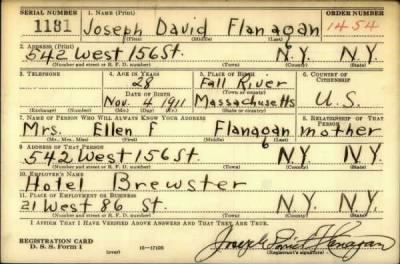 SERIAL NUMBER 1. NAME (Print) ORDER NUMBER
1181 Joseph David Flanagan 1454
(First) (Middle) (Last)
2. ADDRESS (Print)
542 West 156 St. N.Y. N.Y.
(Number and street or R. F. D. number) (Town) (County) (State)
3. TELEPHONE 4. AGE IN YEARS 5. PLACE OF BIRTH 6. COUNTRY OF CITIZENSHIP
28 Fall River
DATE OF BIRTH (Town or county)
Nov. 4 1911 Massachusetts U.S.
(Exchange) (Number) (Mo.) (Day) (Yr.) (State or country)
7. NAME OF PERSON WHO WILL ALWAYS KNOW YOUR ADDRESS 8. RELATIONSHIP OF THAT PERSON
Mrs. Ellen F Flanagan mother
(Mr., Mrs., Miss) (First) (Middle) (Last)
9. ADDRESS OF THAT PERSON
542 West 156 St. N.Y. N.Y.
(Number and street or R. F. D. number) (Town) (County) (State)
10. EMPLOYER'S NAME
Hotel Brewster
11. PLACE OF EMPLOYMENT OR BUSINESS
21 West 86 St. N.Y. N.Y.
(Number and street or R. F. D. number) (Town) (County) (State)
I AFFIRM THAT I HAVE VERIFIED ABOVE ANSWERS AND THAT THEY ARE TRUE.
REGISTRATION CARD
D. S. S. Form 1 (over) 16—17105 Joseph David Flanagan
(Registrant's signature)